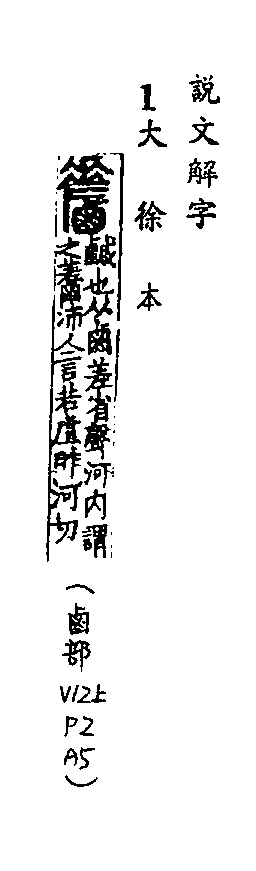 説文解字
1大徐本
䴾
鹹也从鹵差省聲河内謂
之䴾沛人言若虘昨河切
(鹵部V12上P2A5)